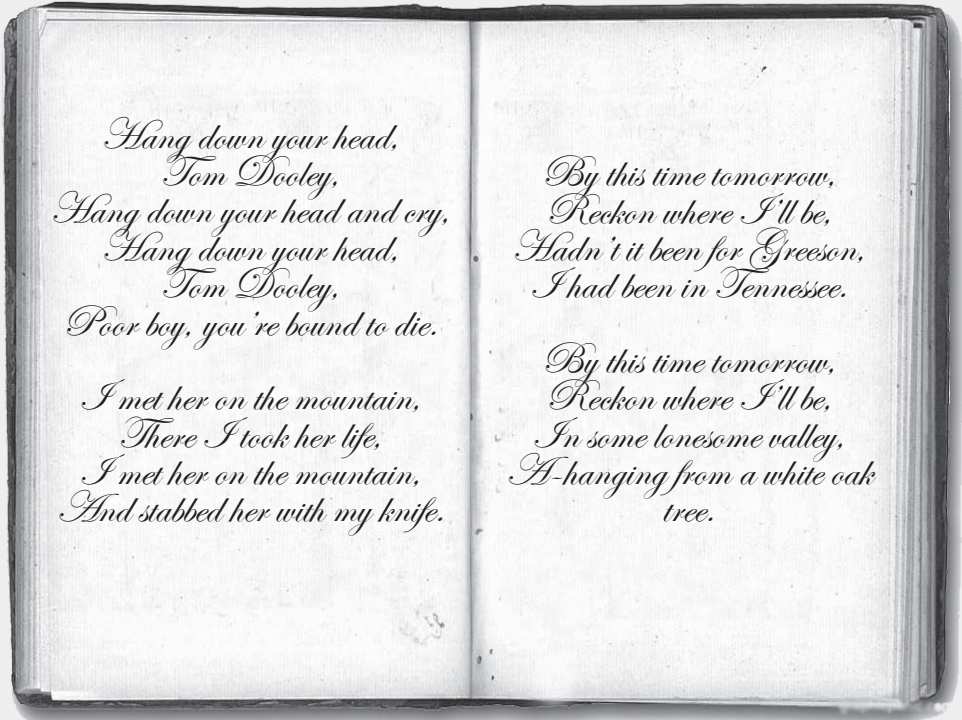 Hang down your head,
Tom Dooley,
Hang down your head and cry,
Hang down your head,
Tom Dooley,
Poor boy, you're bound to die.
I met her on the mountain,
There I took her life,
I met her on the mountain,
And stabbed her with my knife.
By this time tomorrow,
Reckon where I'll be,
Hadn't it been for Greeson,
I had been in Tennessee.
By this time tomorrow,
Reckon where I'll be,
In some lonesome valley,
A-hanging from a white oak
tree.